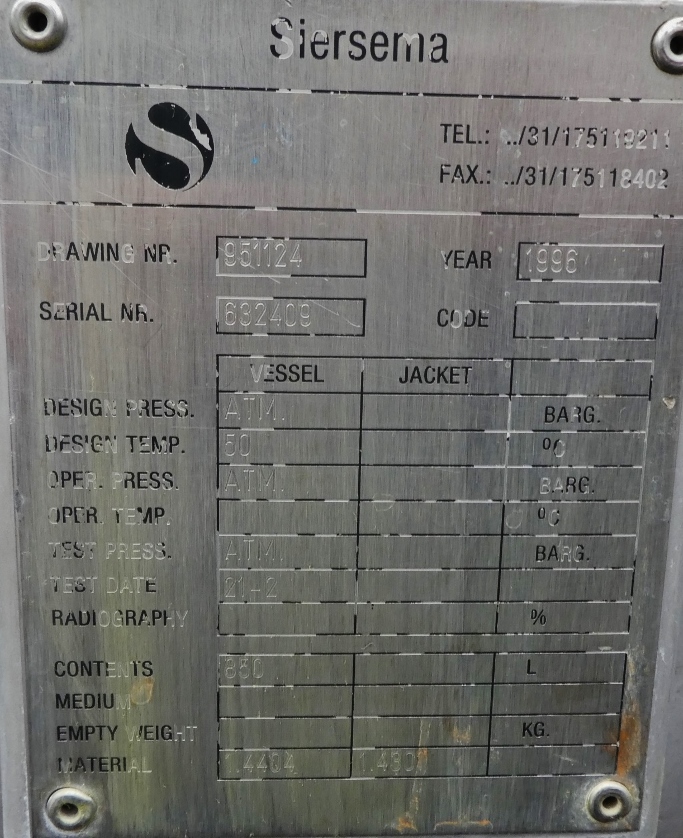 Siersema
S
TEL.: ../31/175119211
FAX.: ../31/175118402
DRAWING NR. 951124 YEAR 1996
SERIAL NR. 632409 CODE
VESSEL JACKET
DESIGN PRESS. ATM. BARG.
DESIGN TEMP. 50 °C
OPER. PRESS. ATM. BARG.
OPER. TEMP. °C
TEST PRESS. ATM. BARG.
TEST DATE 21-2
RADIOGRAPHY %
CONTENTS 850 L
MEDIUM
EMPTY WEIGHT KG.
MATERIAL 1.4404